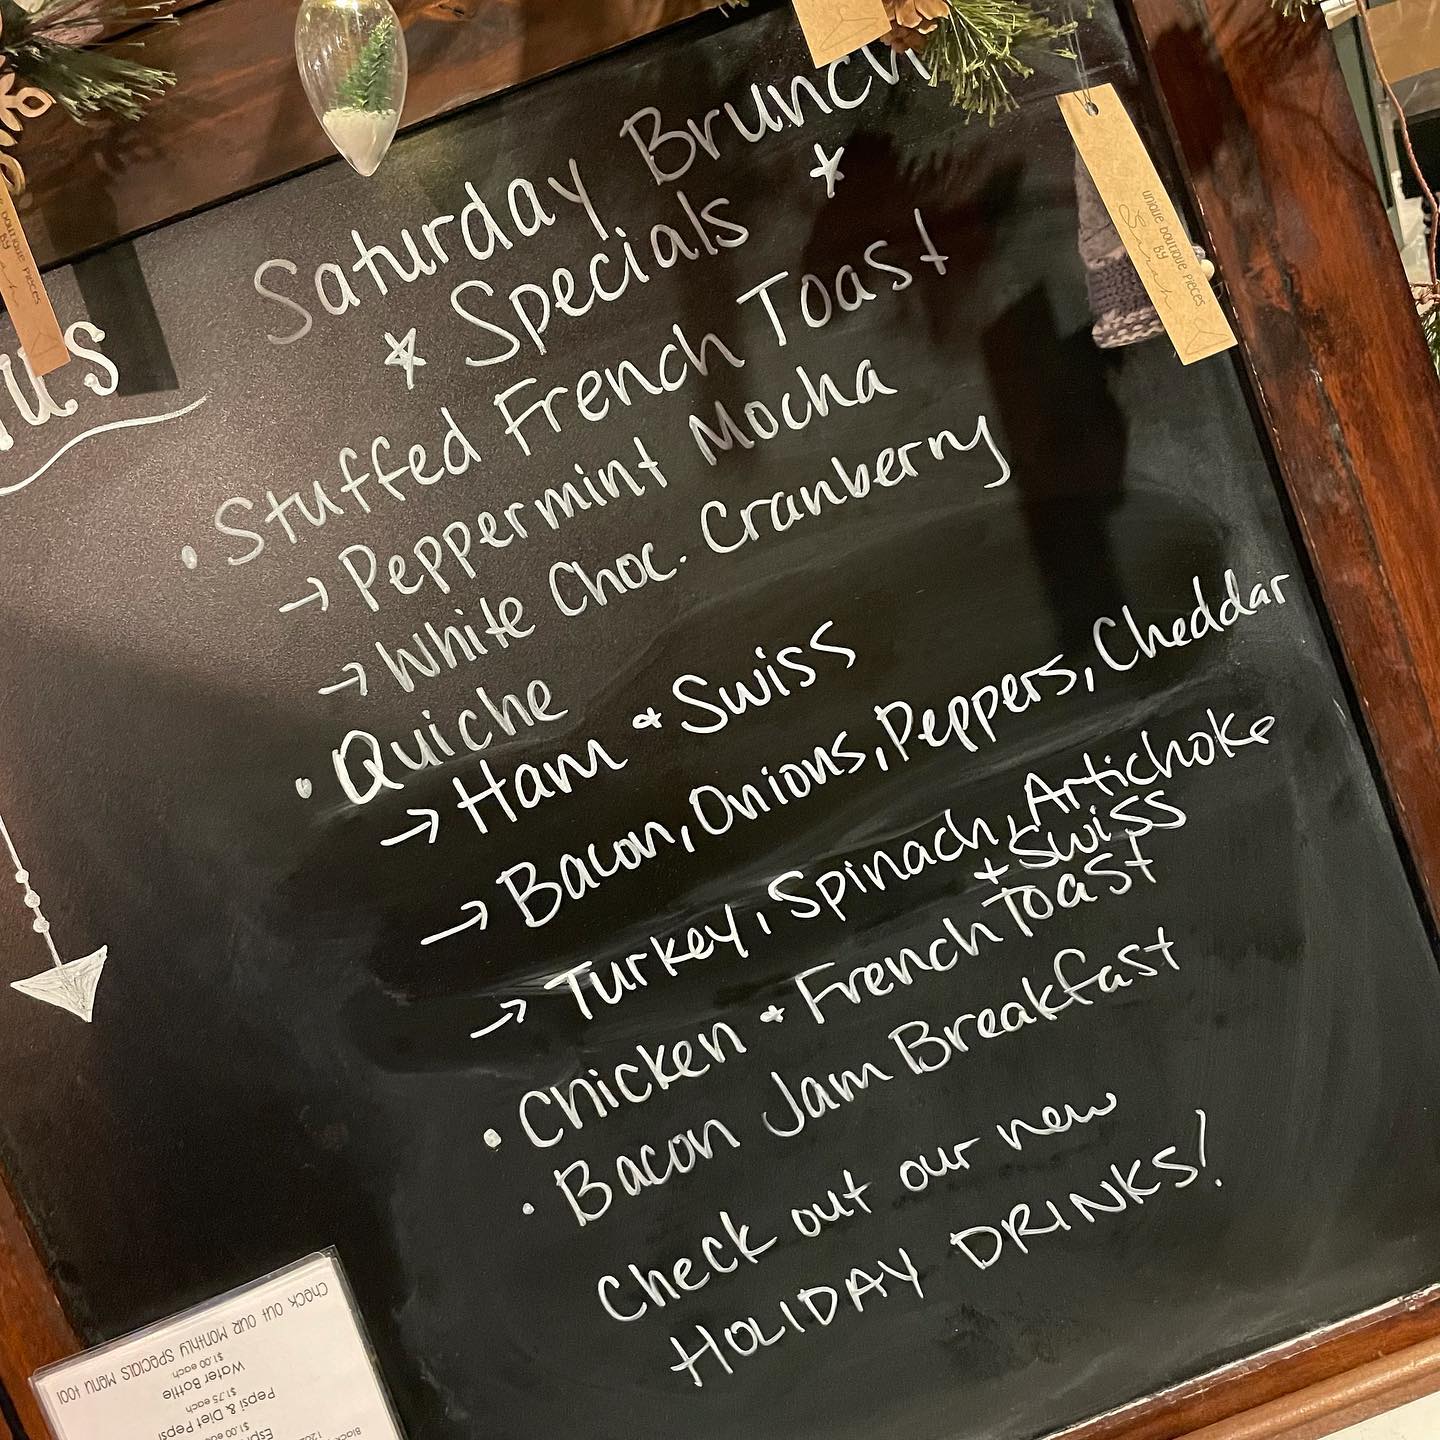 Saturday Brunch
* Specials *
• Stuffed French Toast
→ Peppermint Mocha
→ White Choc. Cranberry
• Quiche
→ Ham & Swiss
→ Bacon, Onions, Peppers, Cheddar
→ Turkey, Spinach, Artichoke
+ Swiss
• Chicken & French Toast
• Bacon Jam Breakfast
Check out our new
HOLIDAY DRINKS!
us
unique boutique pieces
BY
Sarah
boutique pieces
BY
Check out our Monthly Specials Menu too!
$1.00 each
Water Bottle
$1.75 each
Pepsi & Diet Pepsi
$1.00